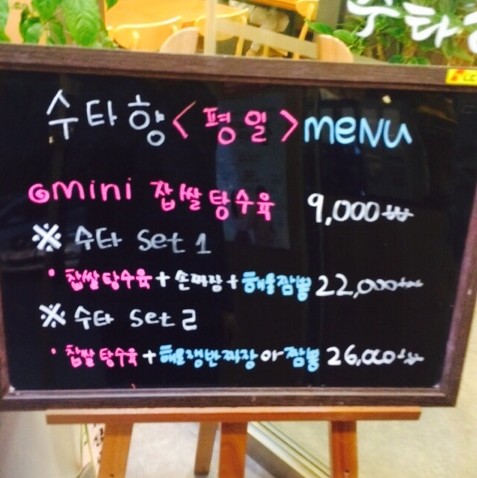 수타
수타향 <평일> MENU
@mini 찹쌀탕수육 9,000₩
※ 수타 Set 1
• 찹쌀탕수육 + 손짜장 + 해물짬뽕 22,000₩
※ 수타 Set 2
• 찹쌀탕수육 + 해물쟁반짜장 or 짬뽕 26,000₩